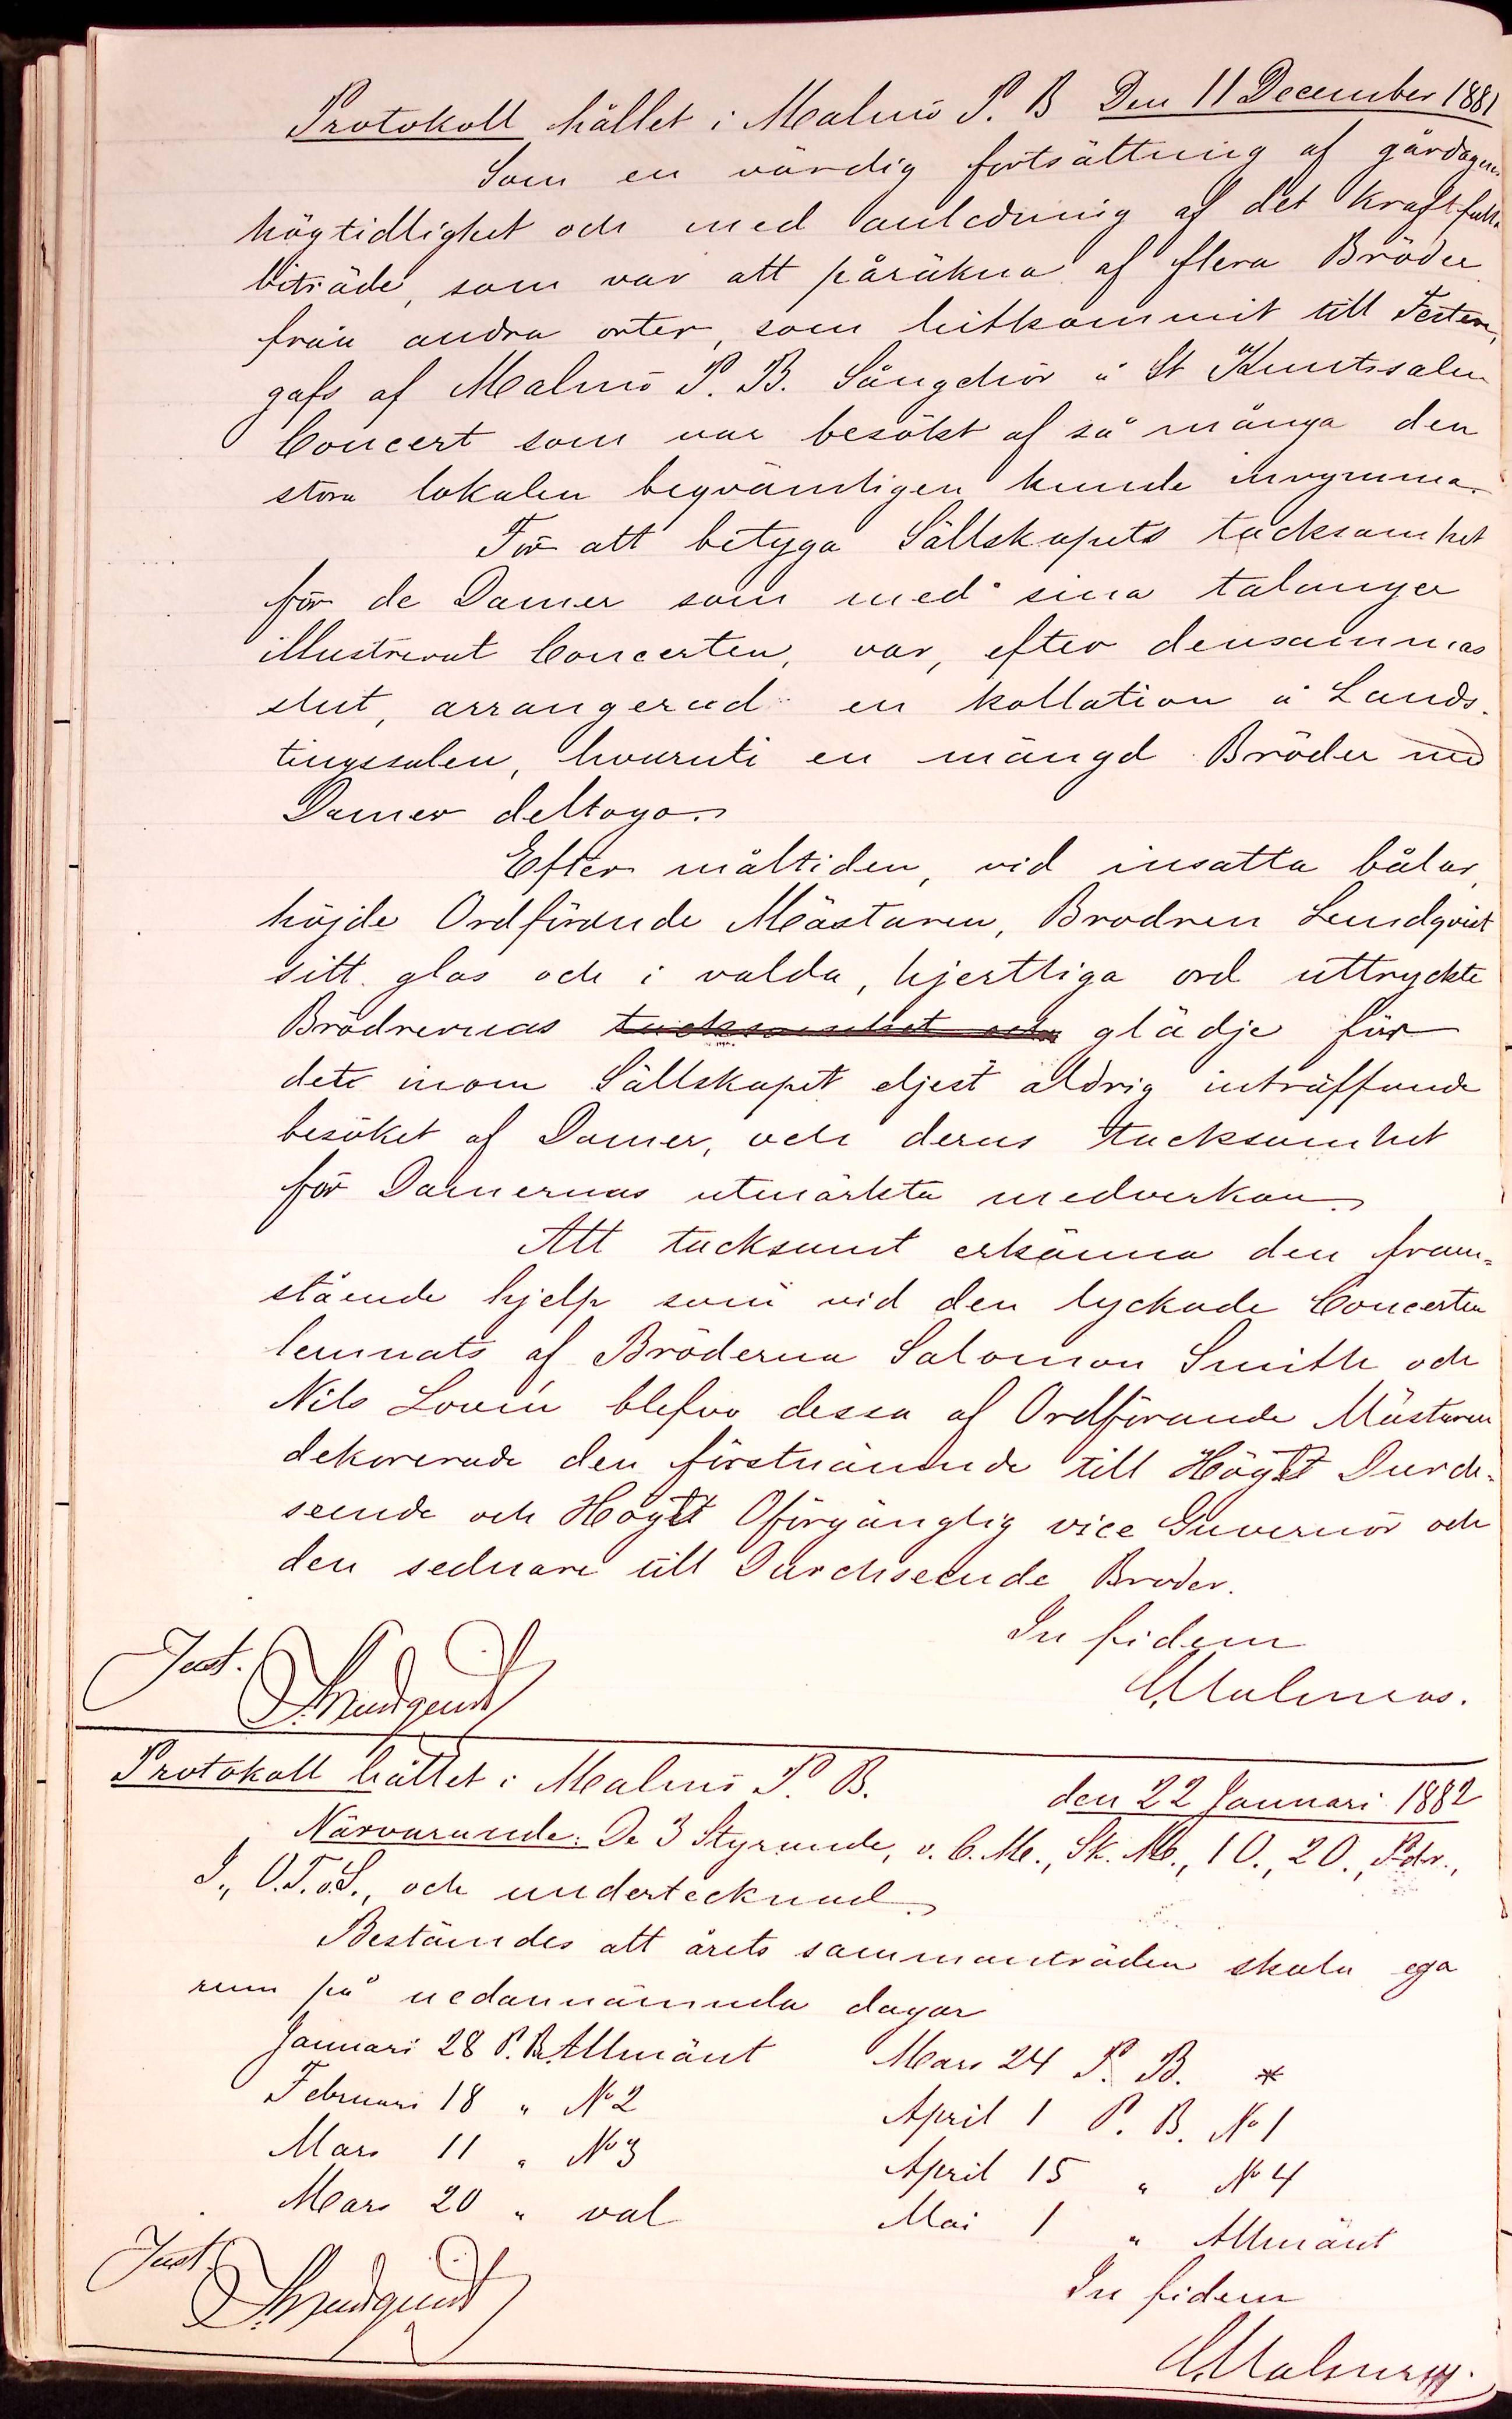 Protokoll hållet i Malmö P. B Den 11 December 1881
Som en värdig fortsättning af gårdagens
högtidlighet och med anledning af det kraftfulla
biträde, som var att påräkna af flera Bröder
från andra orter, som hitkommit till Festen,
gafs af Malmö P. B. Sångchör å St Knutssalen
Concert som var besökt af så många den
stora lokalen beqvämligen kunde inrymma.
För att betyga Sällskapets tacksamhet
för de Damer som med sina talanger
illustrerat Concerten, var, efter densammas
slut, arrangerad en kollation å Lands-
tingssalen, hvaruti en mängd Bröder med
Damer deltogo.
Efter måltiden, vid insatta bålar,
höjde Ordförande Mästaren, Brodren Lundqvist
sitt glas och i valda, hjertliga ord uttryckte
Brödrernas tacksamhet och glädje för
dete inom Sällskapet eljest aldrig inträffande
besöket af Damer, och deras tacksamhet
för Damernas utmärkta medverkan.
Att tacksamt erkänna den fram-
stående hjelp som vid den lyckade Concerten
lemnats af Bröderna Salomon Smith och
Nils Lovén blefvo dessa af Ordförande Mästaren
dekorerade den förstnämnde till Högst Durch-
seende och Högst Oförgänglig vice Guvernör och
den sednare till Durchseende Broder.
In fidem
Just.
Lundquist
CMalmros.
Protokoll hållet i Malmö P. B. den 22 Januari 1882
Närvarande: De 3 Styrande, v. C. M., Sk. M., 1 O., 2 O., Pdr.,
I., O.T.o.S., och undertecknad.
Bestämdes att årets sammanträden skola ega
rum på nedannämnda dagar
Januari 28 P. B. Allmänt Mars 24 P. B. *
Februari 18 " No 2 April 1 P. B. No 1
Mars 11 " No 3 April 15 " No 4
Mars 20 " val Mai 1 " Allmänt
In fidem
Just.
Lundquist
CMalmros.